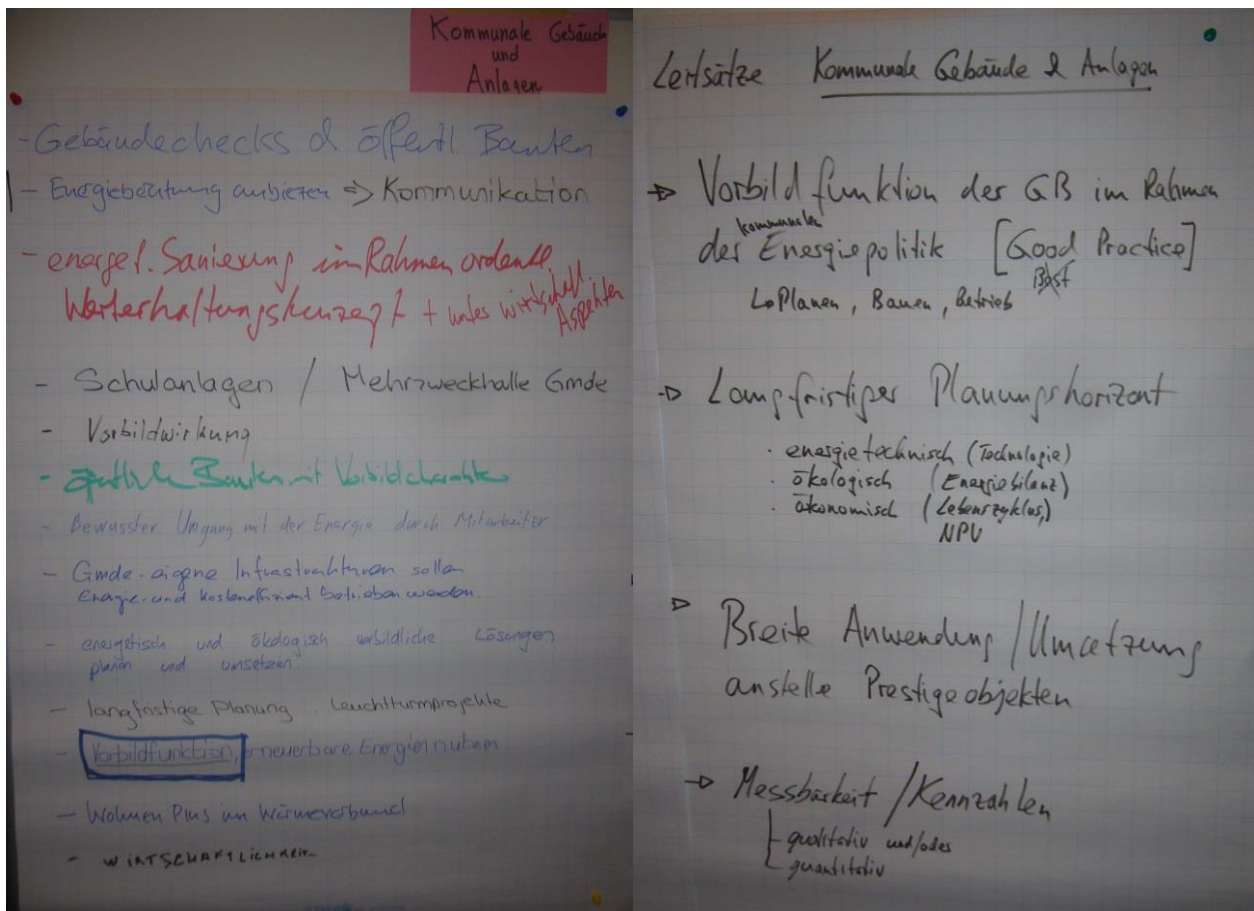 Kommunale Gebäude
und
Anlagen
- Gebäudechecks & öffentl. Bauten
- Energieberatung anbieten => Kommunikation
- energet. Sanierung im Rahmen ordentl.
Werterhaltungskonzept + unter wirtschaftl.
Aspekten
- Schulanlagen / Mehrzweckhalle Gmde
- Vorbildwirkung
- öffentliche Bauten mit Vorbildcharakter
- Bewusster Umgang mit der Energie durch Mitarbeiter
- Gmde-eigene Infrastrukturen sollen
Energie- und kosteneffizient betrieben werden.
- energetisch und ökologisch vorbildliche Lösungen
planen und umsetzen.
- langfristige Planung. Leuchtturmprojekte
- Vorbildfunktion, erneuerbare Energien nutzen
- Wohnen Plus im Wärmeverbund
- WIRTSCHAFTLICHKEIT
Leitsätze Kommunale Gebäude & Anlagen
→ Vorbildfunktion der GB im Rahmen
kommunalen
der Energiepolitik [Good Practice]
Best
↳ Planen, Bauen, Betrieb
→ Langfristiger Planungshorizont
· energietechnisch (Technologie)
· ökologisch (Energiebilanz)
· ökonomisch (Lebenszyklus,)
NPV
▷ Breite Anwendung / Umsetzung
anstelle Prestigeobjekten
→ Messbarkeit / Kennzahlen
- qualitativ und/oder
- quantitativ